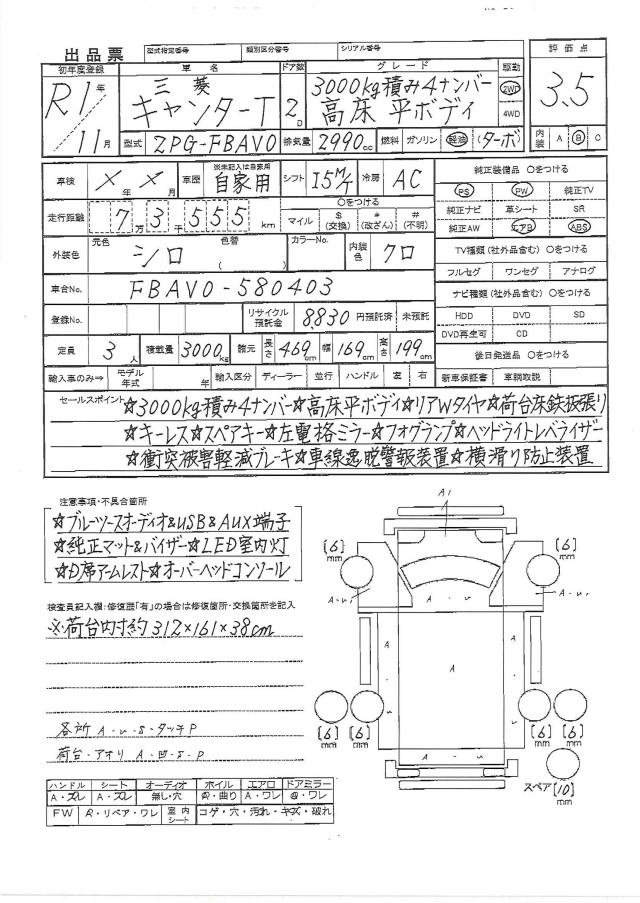 出品票 型式指定番号 類別区分番号 シリアル番号
初年度登録 車名 ドア数 グレード 駆動 評価点
R1年 三菱 2D 3000kg積み4ナンバー 2WD 3.5
11月 キャンターT 高床 平ボディ 4WD
型式 2PG-FBAV0 排気量 2990cc 燃料 ガソリン 軽油 (ターボ) 内装 A B C
車検 ×年×月 車歴 ※未記入は自家用 自家用 シフト I5M/T 冷房 AC
純正装備品 ○をつける
PS PW 純正TV
走行距離 7万3千555km マイル ○をつける $(交換) *(改ざん) #(不明)
純正ナビ 革シート SR
純正AW エアB ABS
外装色 元色 シロ 色替 ( ) カラーNo. 内装色 クロ
TV種類(社外品含む) ○をつける
フルセグ ワンセグ アナログ
車台No. FBAV0-580403
ナビ種類(社外品含む) ○をつける
登録No. リサイクル預託金 8,830 円預託済 未預託
HDD DVD SD
DVD再生可 CD
定員 3人 積載量 3000kg 諸元 長さ 469cm 幅 169cm 高さ 199cm
後日発送品 ○をつける
輸入車のみ⇒ モデル年式 年 輸入区分 ディーラー 並行 ハンドル 左 右 新車保証書 車輌取説
セールスポイント ☆3000kg積み4ナンバー☆高床平ボディ☆リアWタイヤ☆荷台床鉄板張り
☆キーレス☆スペアキー☆左電格ミラー☆フォグランプ☆ヘッドライトレベライザー
☆衝突被害軽減ブレーキ☆車線逸脱警報装置☆横滑り防止装置
注意事項・不具合箇所
☆ブルーツースオーディオ&USB&AUX端子
☆純正マット&バイザー☆LED室内灯
☆D席アームレスト☆オーバーヘッドコンソール
検査員記入欄:修復歴「有」の場合は修復箇所・交換箇所を記入
※荷台内寸約312×161×38cm
各所 A・U・S・タッチP
荷台・アオリ A・凹・S・P
A1
[6]mm [6]mm
A・U1 A・U1
A A A
[6]mm [6]mm [6]mm [6]mm
スペア [10]mm
ハンドル シート オーディオ ホイル エアロ ドアミラー
A・スレ A・スレ 無し・穴 A・曲り A・ワレ ・ワレ
FW ・リペア・ワレ 室内シート コゲ・穴・汚れ・キズ・破れ